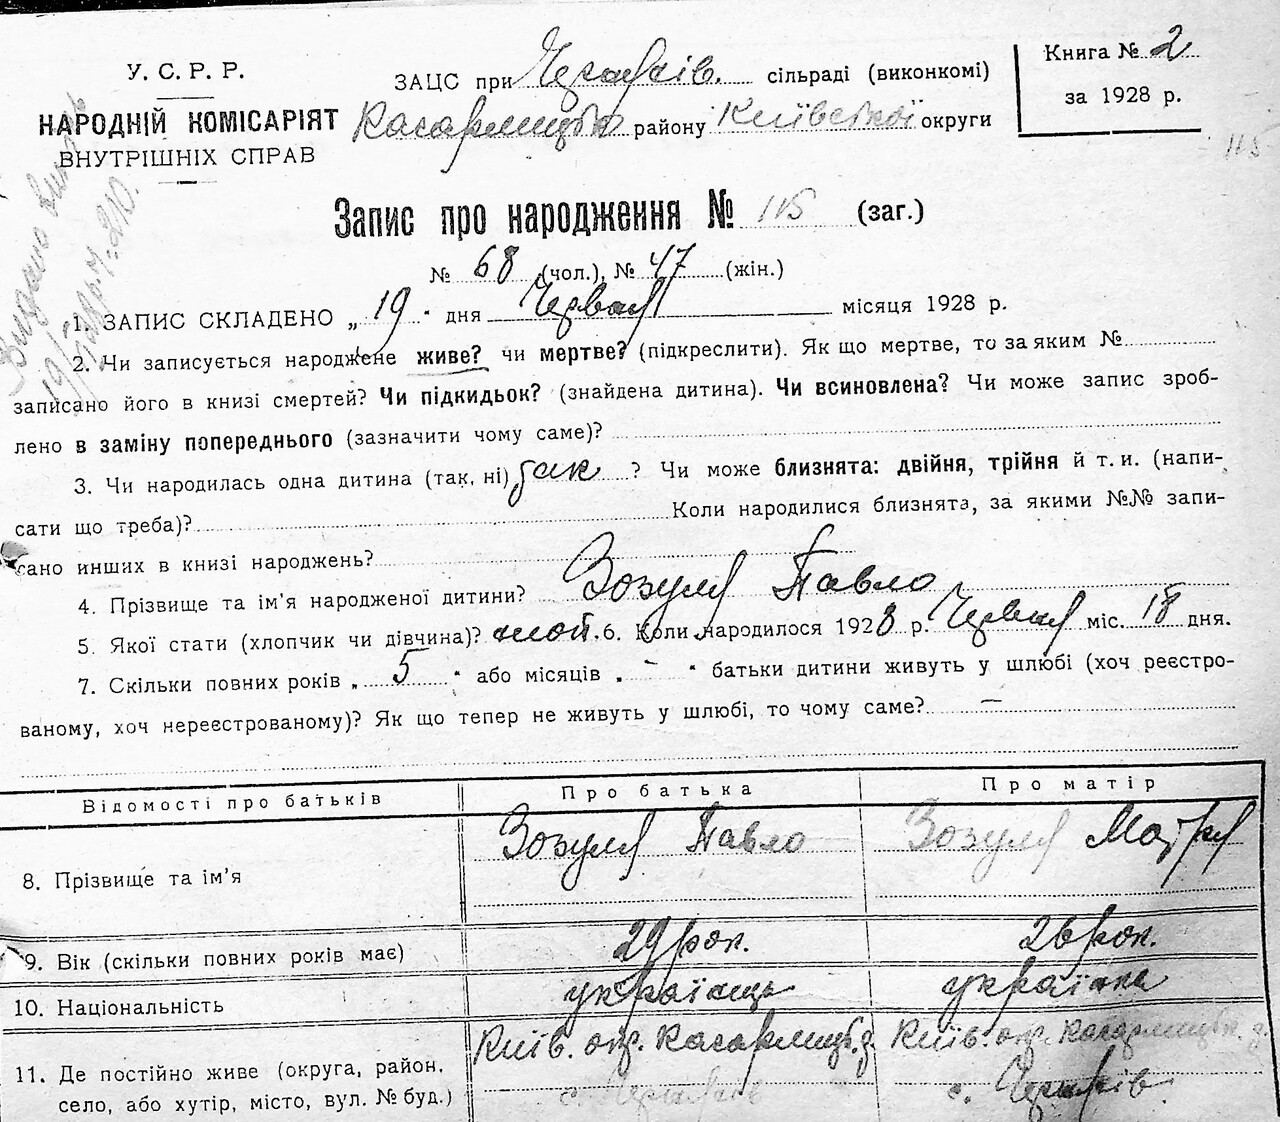 У. С. Р. Р.
НАРОДНІЙ КОМІСАРІЯТ
ВНУТРІШНІХ СПРАВ
ЗАЦС при Черняхів. сільраді (виконкомі)
Кагарлицьк району Київської округи
Книга № 2
за 1928 р.
115
Видано
Запис про народження № 115 (заг.)
№ 68 (чол.), № 47 (жін.)
1. ЗАПИС СКЛАДЕНО „ 19 “ дня Червня місяця 1928 р.
2. Чи записується народжене живе? чи мертве? (підкреслити). Як що мертве, то за яким №
записано його в книзі смертей? Чи підкидьок? (знайдена дитина). Чи всиновлена? Чи може запис зроб-
лено в заміну попереднього (зазначити чому саме)?
3. Чи народилась одна дитина (так, ні) так ? Чи може близнята: двійня, трійня й т. и. (напи-
сати що треба)? Коли народилися близнята, за якими №№ запи-
сано инших в книзі народжень?
4. Прізвище та ім’я народженої дитини? Зозуля Павло
5. Якої стати (хлопчик чи дівчина)? 6. Коли народилося 1928 р. Червня міс. 18 дня.
7. Скільки повних років „ 5 “ або місяців „ – “ батьки дитини живуть у шлюбі (хоч реєстро-
ваному, хоч нереєстрованому)? Як що тепер не живуть у шлюбі, то чому саме? –
Відомості про батьків Про батька Про матір
8. Прізвище та ім’я Зозуля Павло Зозуля Мотря
9. Вік (скільки повних років має) 29 рок. 26 рок.
10. Національність українець українка
11. Де постійно живе (округа, район, Київ. окр. Кагарлицьк. Київ. окр. Кагарлицьк.
село, або хутір, місто, вул. № буд.) с. Черняхів с. Черняхів